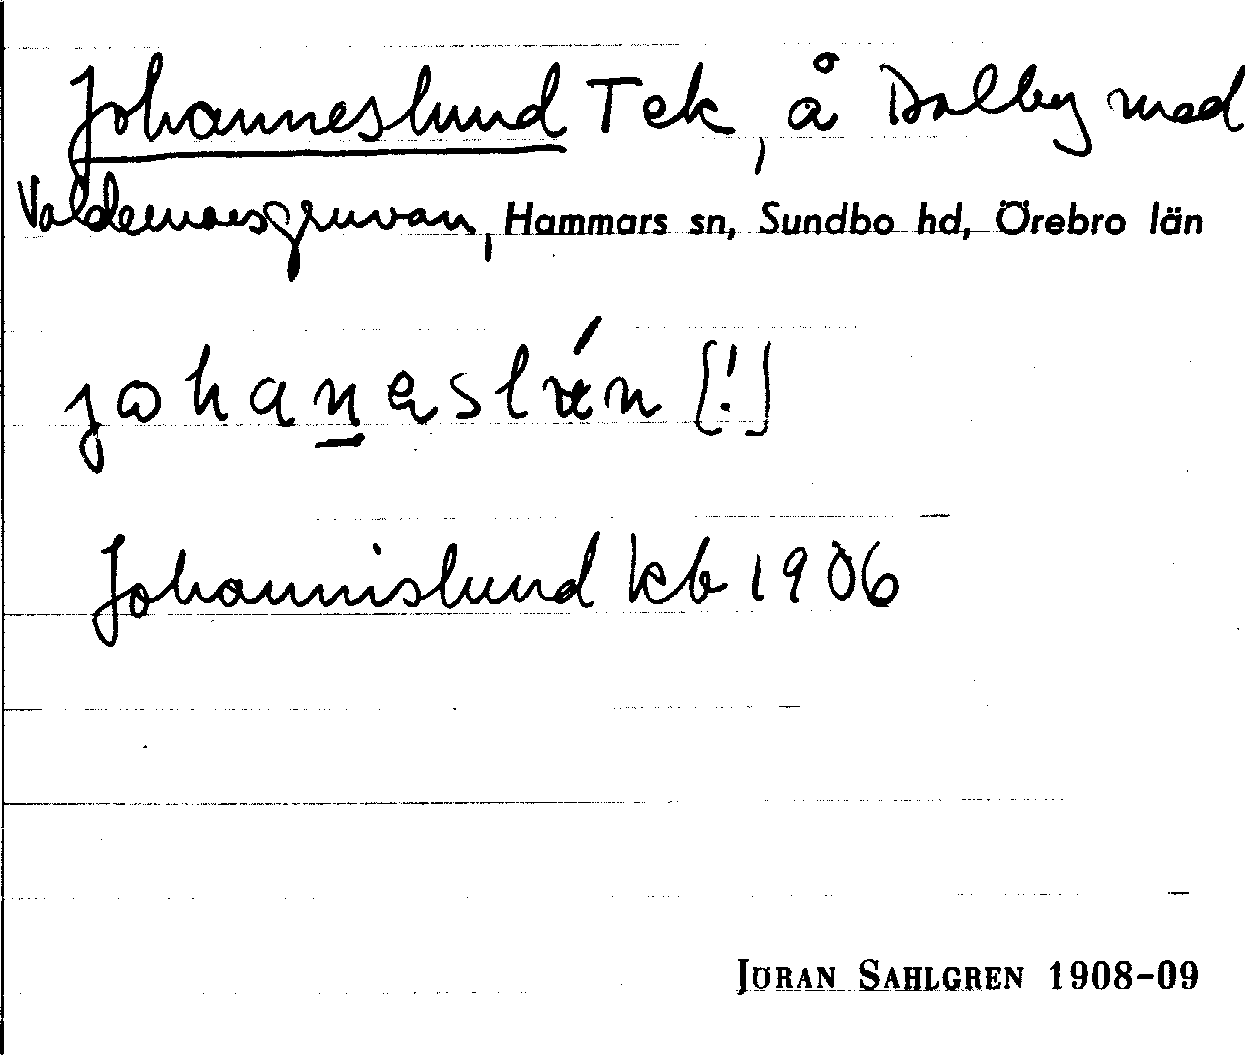 Johanneslund Tek, å Dalby med
Valdemarsgruvan, Hammars sn, Sundbo hd, Örebro län
johaneslán [!]
Johannislund kb 1906
JÖRAN SAHLGREN 1908-09